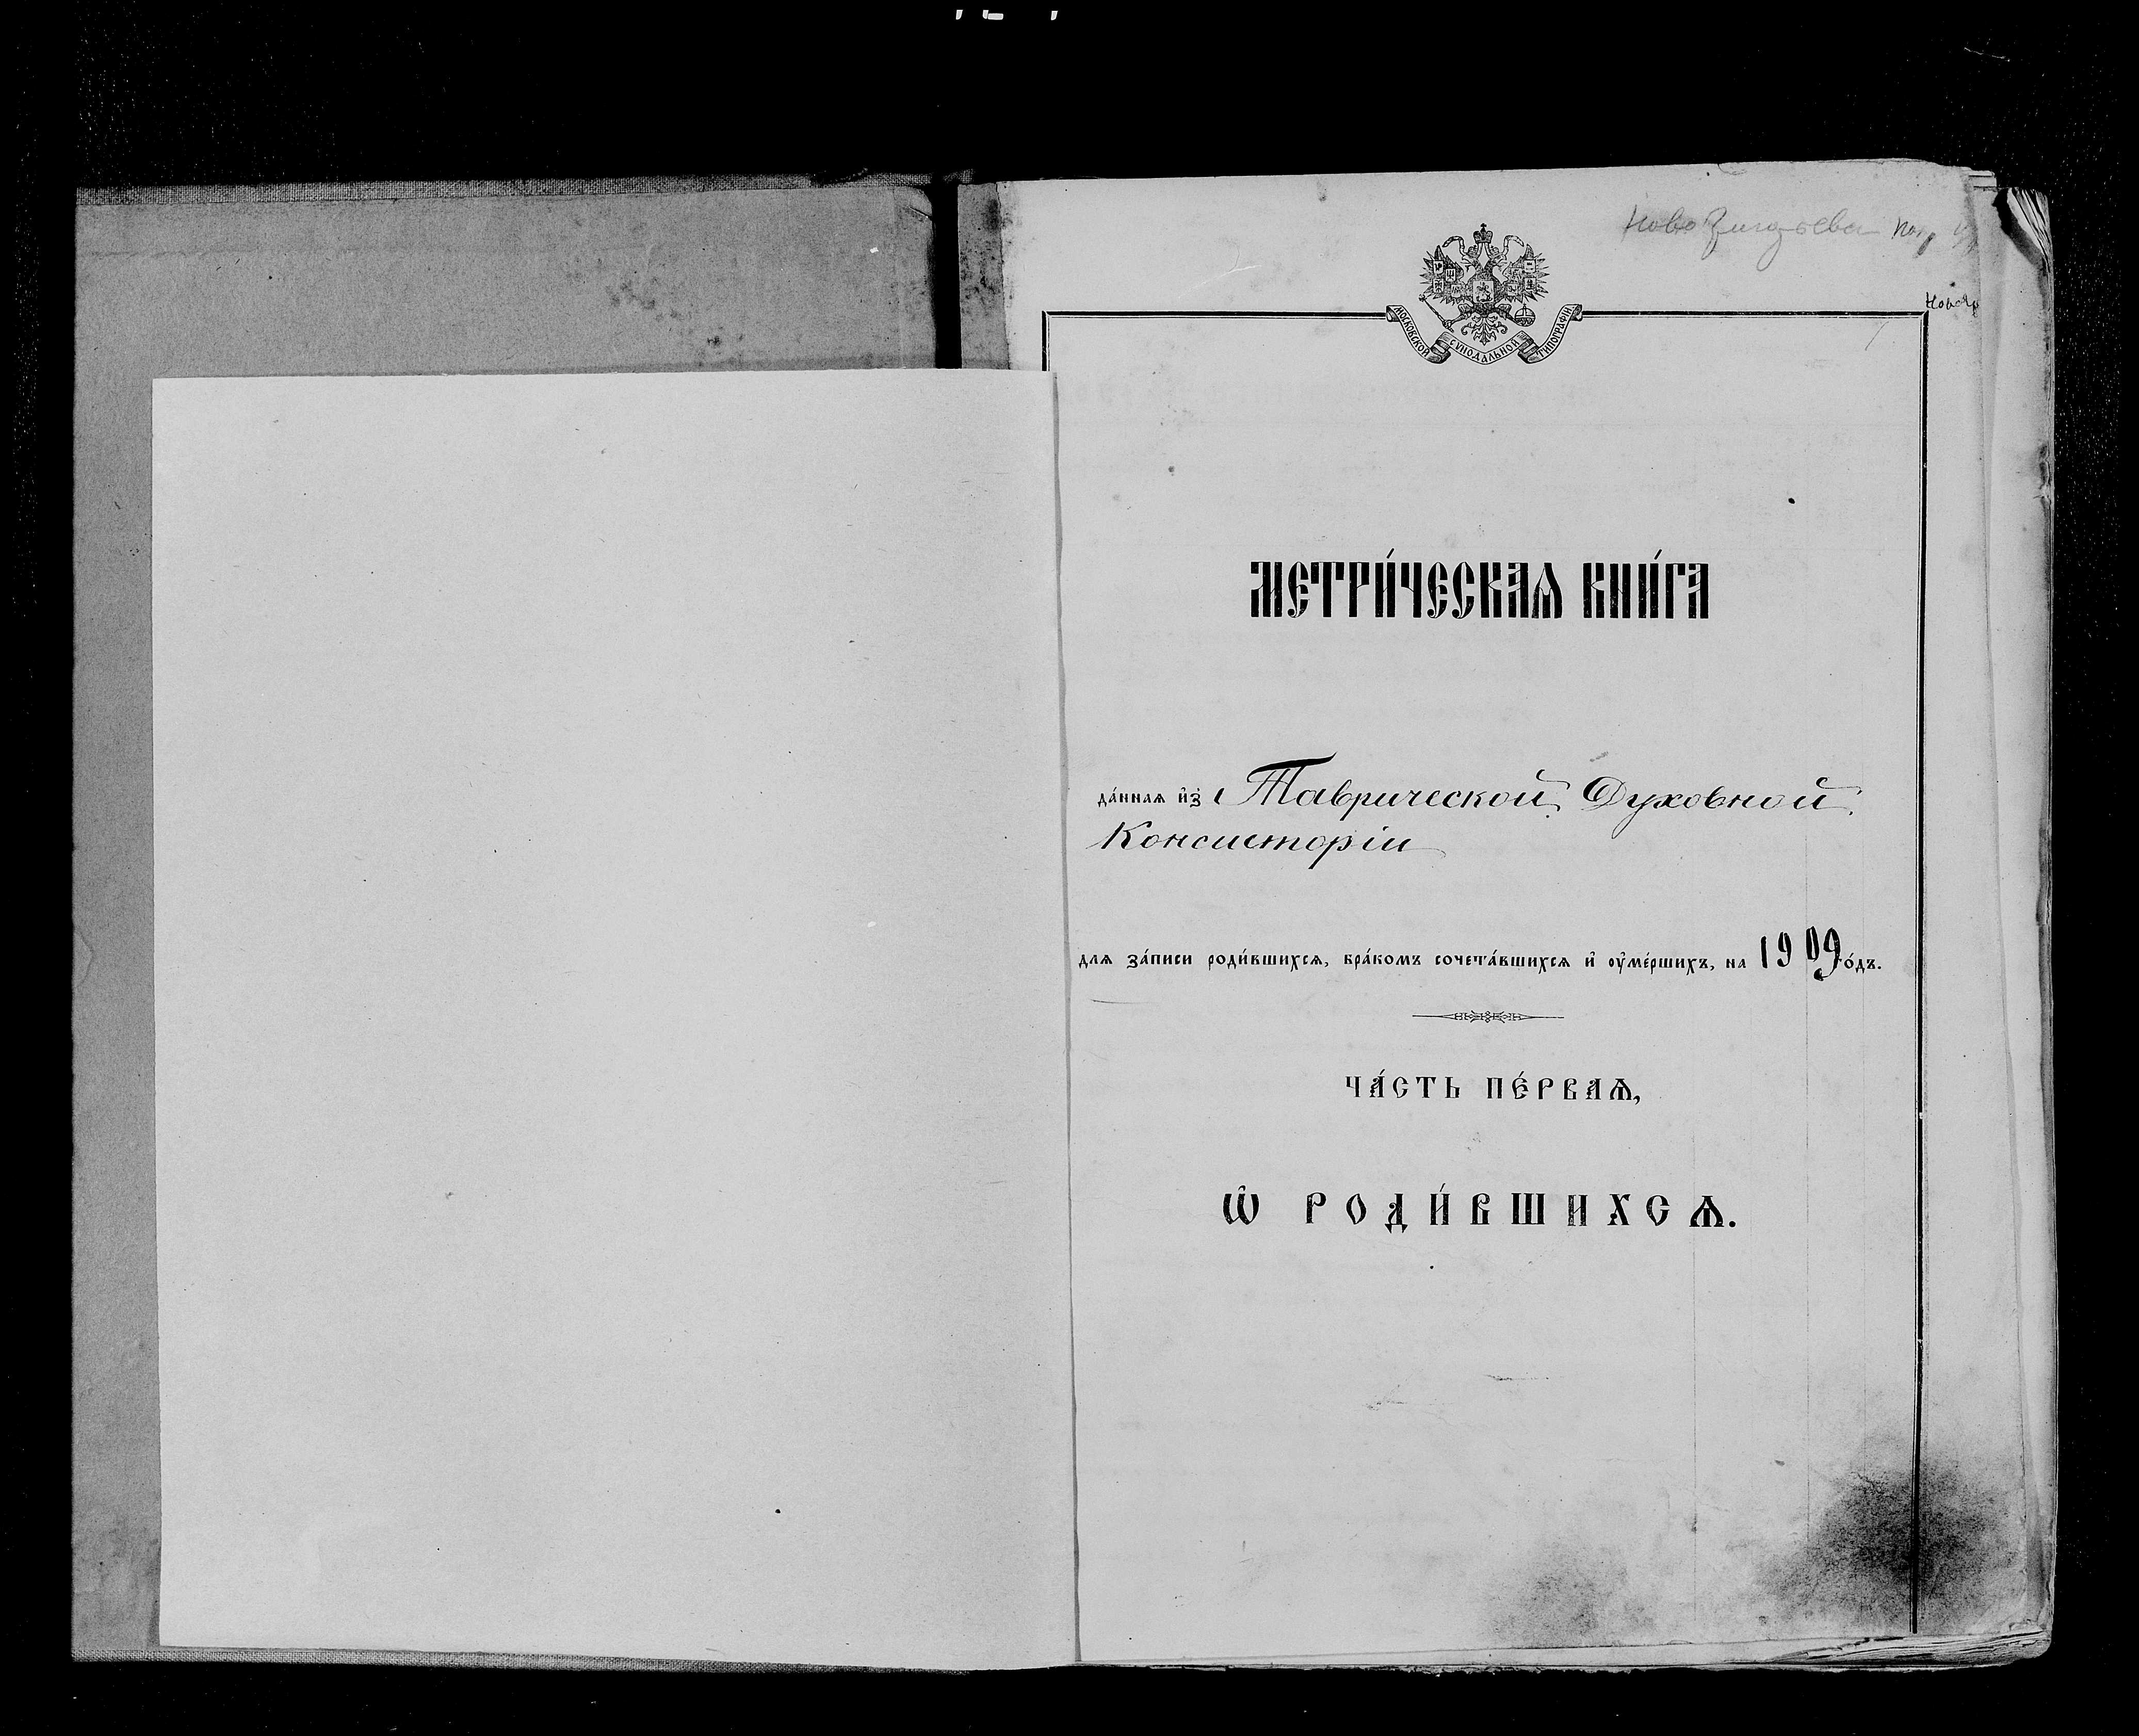 МОСКОВСКОЙ СѴНОДАЛЬНОЙ ТИПОГРАФІИ
МЕТРИ́ЧЕСКАѦ КНИ́ГА
да́ннаѧ и҆з̾ Таврической Духовной
Консисторіи
для за́писи роди́вшихсѧ, бра́комъ сочета́вшихсѧ и҆ оу҆ме́ршихъ, на 1909 го́дъ.
ЧА́СТЬ ПЕ́РВАѦ,
Ѡ҆ РОДИ́ВШИХСѦ.